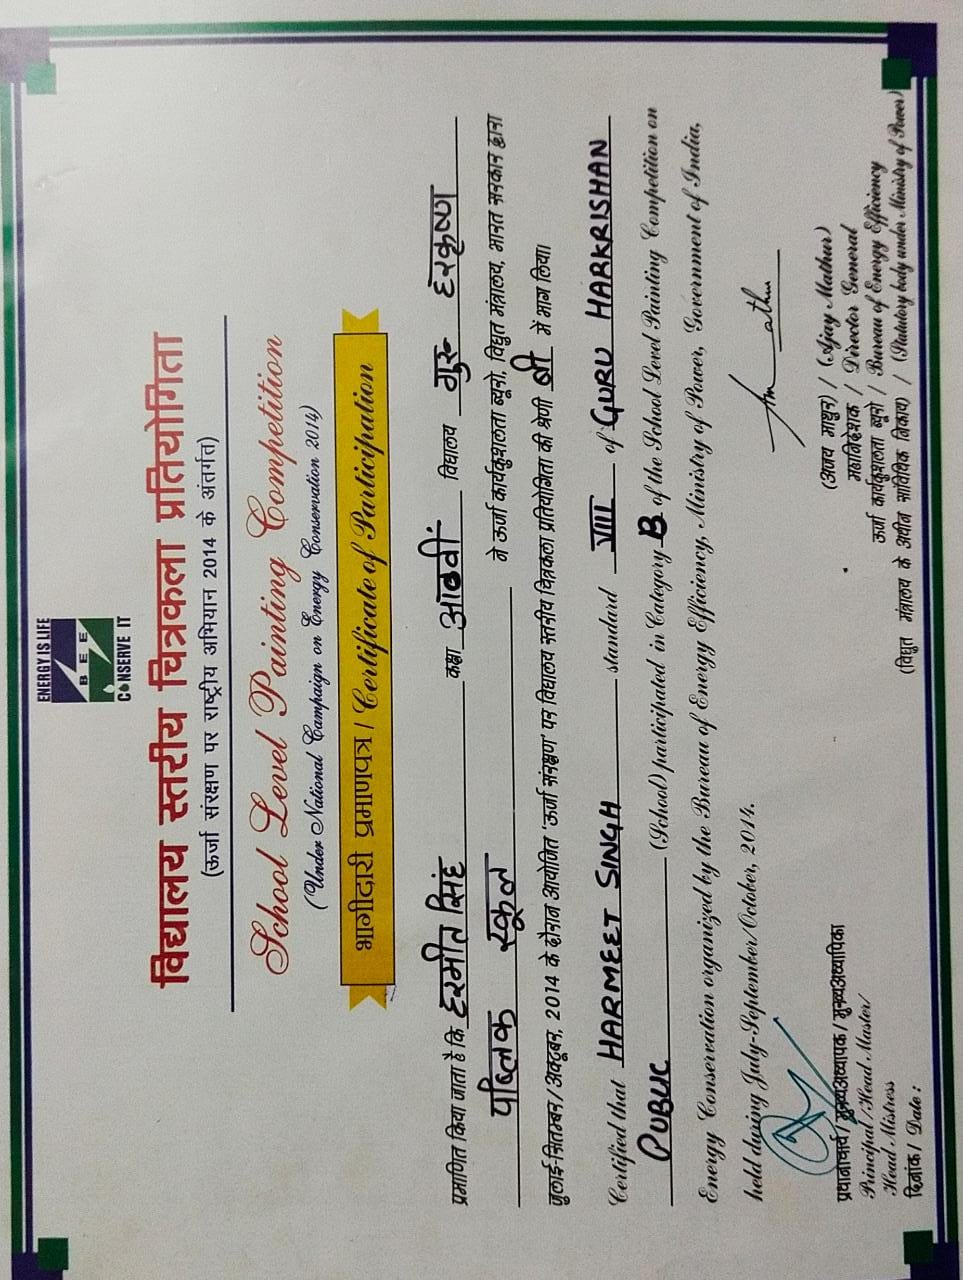 ENERGY IS LIFE
BEE
CONSERVE IT
विद्यालय स्तरीय चित्रकला प्रतियोगिता
(ऊर्जा संरक्षण पर राष्ट्रीय अभियान 2014 के अंतर्गत)
School Level Painting Competition
(Under National Campaign on Energy Conservation 2014)
भागीदारी प्रमाणपत्र / Certificate of Participation
प्रमाणित किया जाता है कि हरमीत सिंह कक्षा आठवीं विद्यालय गुरू हरकृष्ण
पब्लिक स्कूल ने ऊर्जा कार्यकुशलता ब्यूरो, विद्युत मंत्रालय, भारत सरकार द्वारा
जुलाई-सितम्बर/अक्टूबर, 2014 के दौरान आयोजित 'ऊर्जा संरक्षण' पर विद्यालय स्तरीय चित्रकला प्रतियोगिता की श्रेणी बी में भाग लिया।
Certified that HARMEET SINGH standard VIII of GURU HARKRISHAN
PUBLIC (School) participated in Category B of the School Level Painting Competition on
Energy Conservation organized by the Bureau of Energy Efficiency, Ministry of Power, Government of India,
held during July-September/October, 2014.
प्रधानाचार्य / मुख्यअध्यापक / मुख्यअध्यापिका
Principal /Head Master/
Head Mistress
दिनांक / Date :
(अजय माथुर) / (Ajay Mathur)
महानिदेशक / Director General
ऊर्जा कार्यकुशलता ब्यूरो / Bureau of Energy Efficiency
(विद्युत मंत्रालय के अधीन सांविधिक निकाय) / (Statutory body under Ministry of Power)